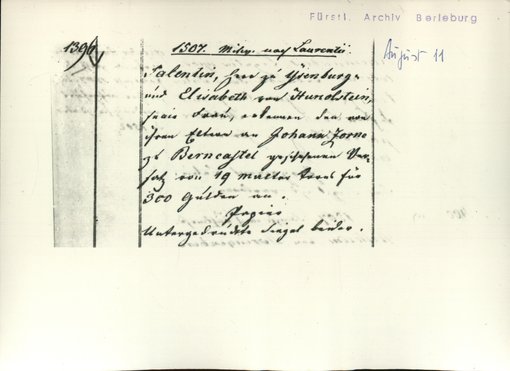 Fürstl. Archiv Berleburg
1396
1507. Mittw. nach Laurentii
August 11
Salentin, Herr zu Ysenburg
und Elisabeth von Hunolstein,
seine Frau, erkennen den von
ihren Eltern an Johann Zorne
zu Berncastel geschehenen Ver-
satz von 19 malter Korns für
300 Gulden an.
Papier
Untergedrückte Siegel beider.